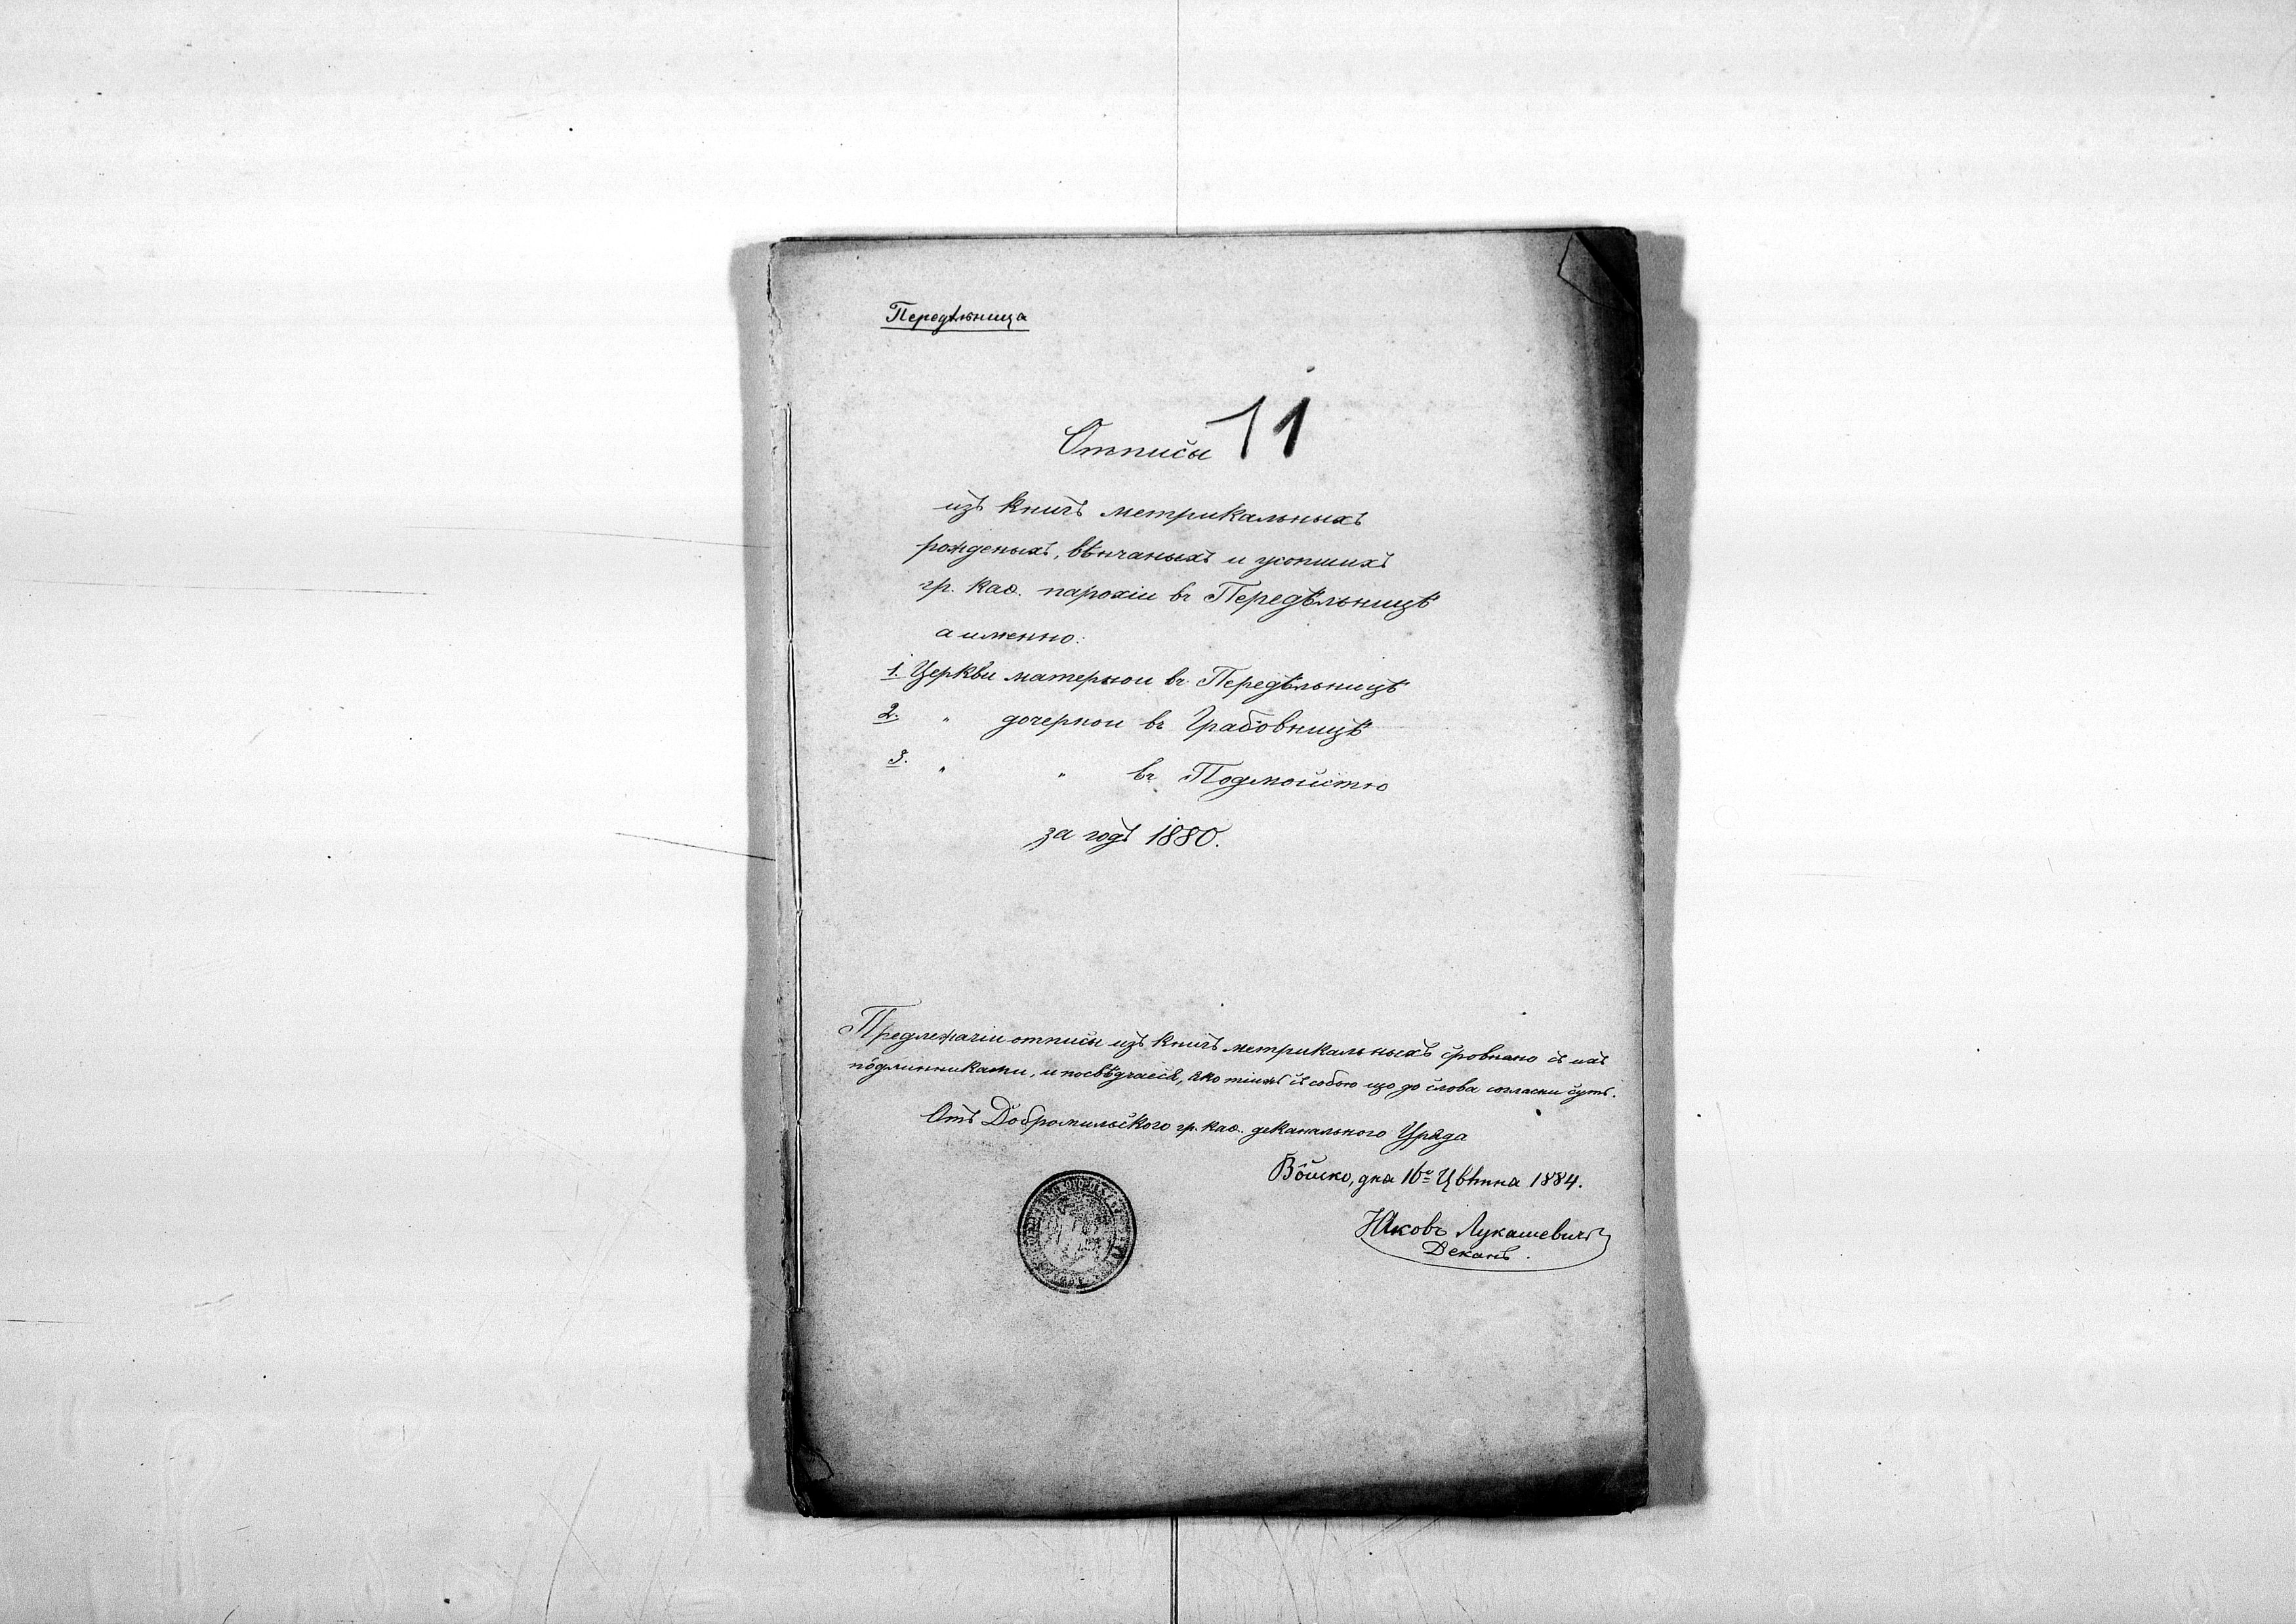 Передѣльница
11
Отписы
изъ книгъ метрикальныхъ
рожденыхъ, вѣнчаныхъ и усопшихъ
гр. каѳ. парохіи въ Передѣльницѣ
а именно:
1. Церкви матерной въ Передѣльницѣ
2. " дочерной въ Грабовницѣ
3. " " въ Подмойстю
за годъ 1880.
Предлежачіи отписы изъ книгъ метрикальныхъ сровнано съ ихъ
по̂длинниками, и посвѣдчаеся, яко тіижъ съ собою що до слова согласни суть.
Отъ Добромильского гр. каѳ. деканального Уряда
Во̂йско, дна 16го Цвѣтна 1884.
Іаковъ Лукашевичъ
Деканъ.